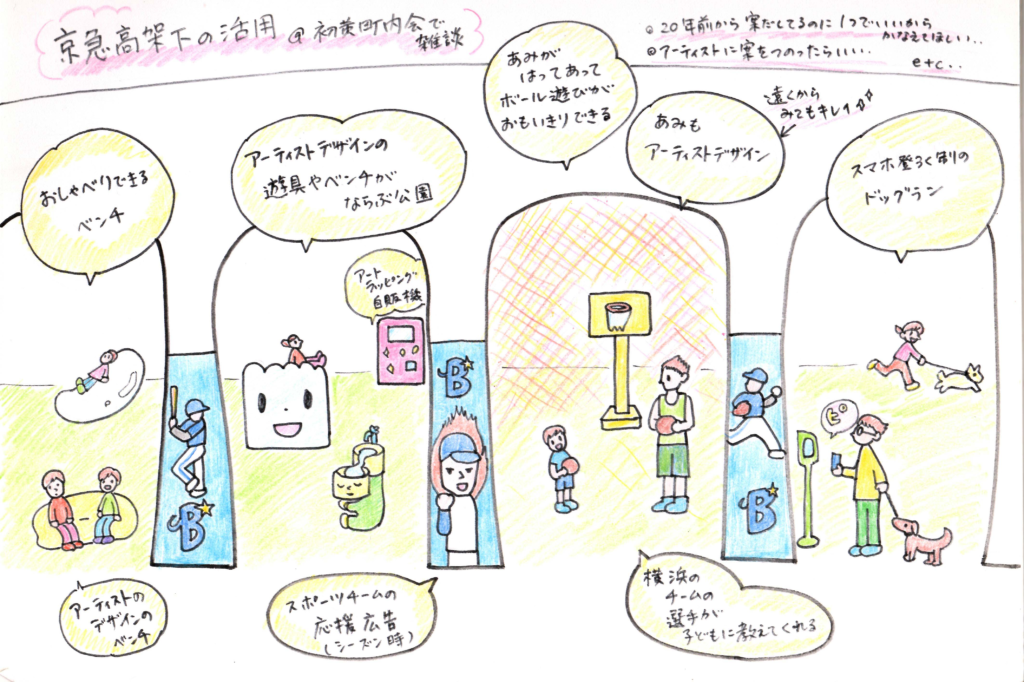 京急高架下の活用 @ 初黄町内会で
雑談
◎20年前から案だしてるのに1つでいいから
かなえてほしい..
◎アーティストに案をつのったらいい..
etc..
おしゃべりできる
ベンチ
アーティストデザインの
遊具やベンチが
ならぶ公園
あみが
はってあって
ボール遊びが
おもいきりできる
あみも
アーティストデザイン
遠くから
みてもキレイ
スマホ登ろく制の
ドッグラン
アート
ラッピング
自販機
B
B
B
ピ
アーティストの
デザインの
ベンチ
スポーツチームの
応援広告
(シーズン時)
横浜の
チームの
選手が
子どもに教えてくれる